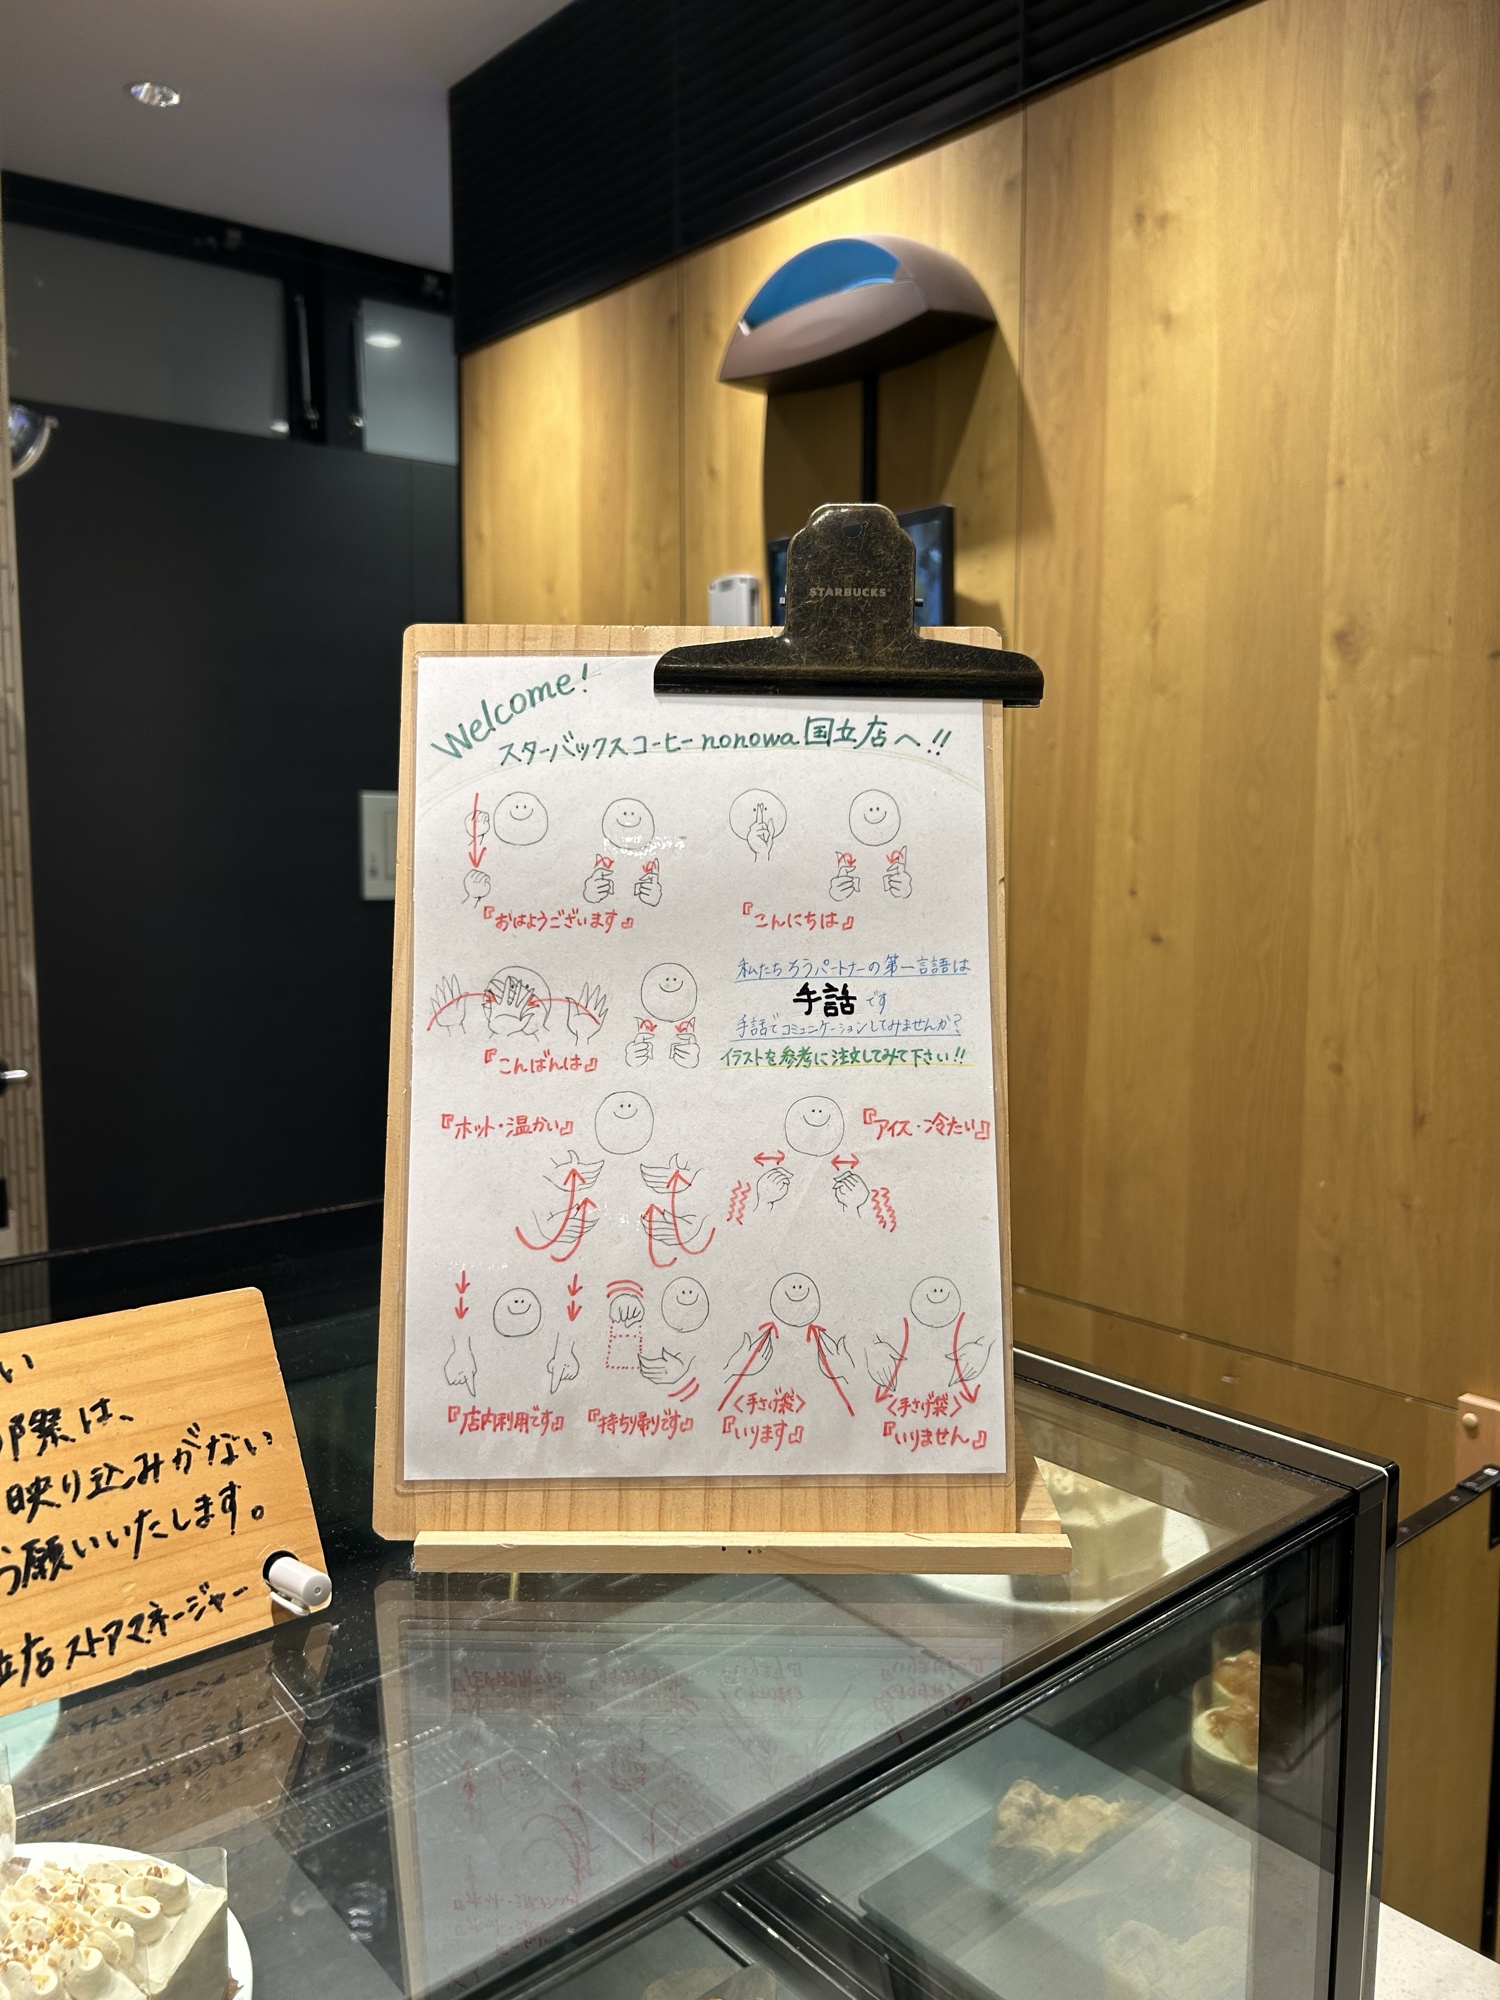 STARBUCKS
Welcome!
スターバックスコーヒーnonowa国立店へ!!
『おはようございます』
『こんにちは』
『こんばんは』
私たちろうパートナーの第一言語は
手話です
手話でコミュニケーションしてみませんか?
イラストを参考に注文してみて下さい!!
『ホット・温かい』
『アイス・冷たい』
『店内利用です』
『持ち帰りです』
〈手さげ袋〉
『いります』
〈手さげ袋〉
『いりません』
い
際は、
映り込みがない
願いいたします。
立店ストアマネージャー